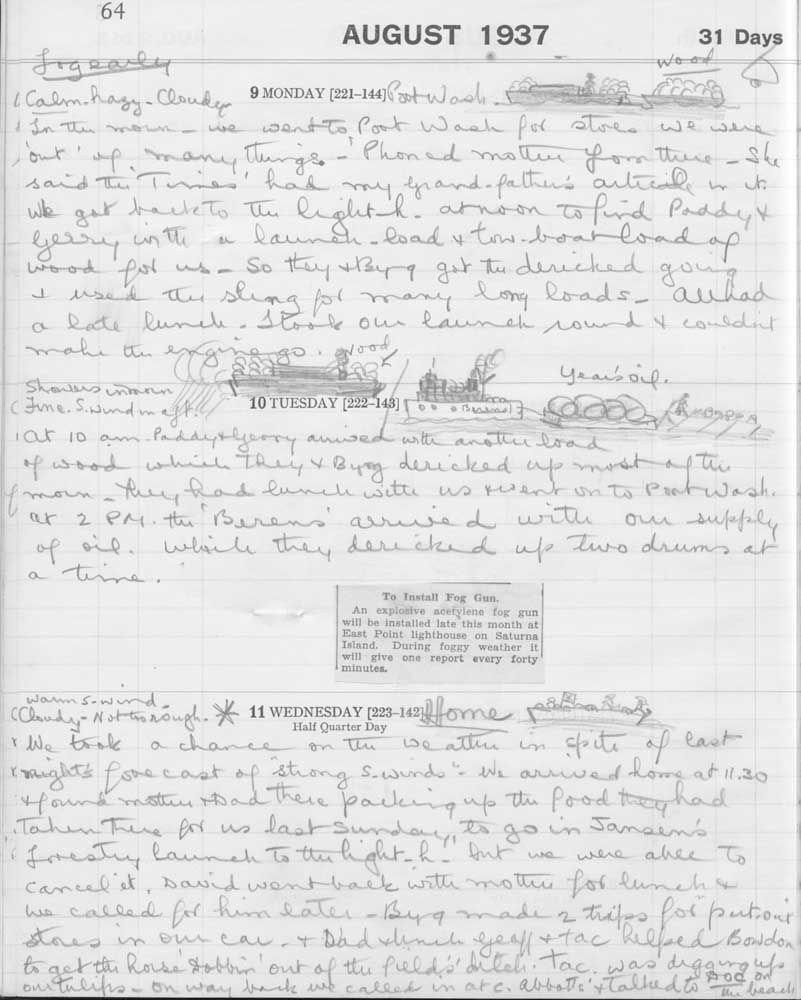 64
AUGUST 1937 31 Days
Fog early
wood
Calm. hazy - Cloudy 9 MONDAY [221–144] Port Wash.
In the morn - we went to Port Wash for stores we were
'out' of many things - 'Phoned mother from there - She
said the 'Times' had my grand-father's article in it.
We got back to the light-h. at noon to find Paddy &
Gerry with a launch-load & tow-boat load of
wood for us - So they & Byrg got the dericked going
& used the sling for many long loads - All had
a late lunch - I took our launch round & couldn't
make the engine go.
wood
Showers in morn
Year's oil.
Fine. S. wind in aft. 10 TUESDAY [222–143]
Berens
At 10 am. Paddy & Gerry arrived with another load
of wood which they & Byrg dericked up most of the
morn - they had lunch with us & went on to Port Wash.
At 2 P.M. the 'Berens' arrived with our supply
of oil. which they dericked up two drums at
a time.
To Install Fog Gun.
An explosive acetylene fog gun
will be installed late this month at
East Point lighthouse on Saturna
Island. During foggy weather it
will give one report every forty
minutes.
warm S-wind.
Cloudy - Not too rough. 11 WEDNESDAY [223–142] Home
Half Quarter Day
We took a chance on the weather in spite of last
night's forecast of "strong S. winds" - We arrived home at 11.30
& found mother & Dad there packing up the food they had
taken there for us last Sunday, to go in Jansen's
Forestry launch to the light-h - but we were able to
cancel it. David went back with mother for lunch &
we called for him later - Byrg made 2 trips for put-out
stores in our car. & Dad & Geoff & Tac helped Bowdon
to get the horse 'Dobbin' out of the fields' ditch. Tac. was digging up
our tulips - on way back we called in at C. Abbotts' & talked to DOC on
the beach